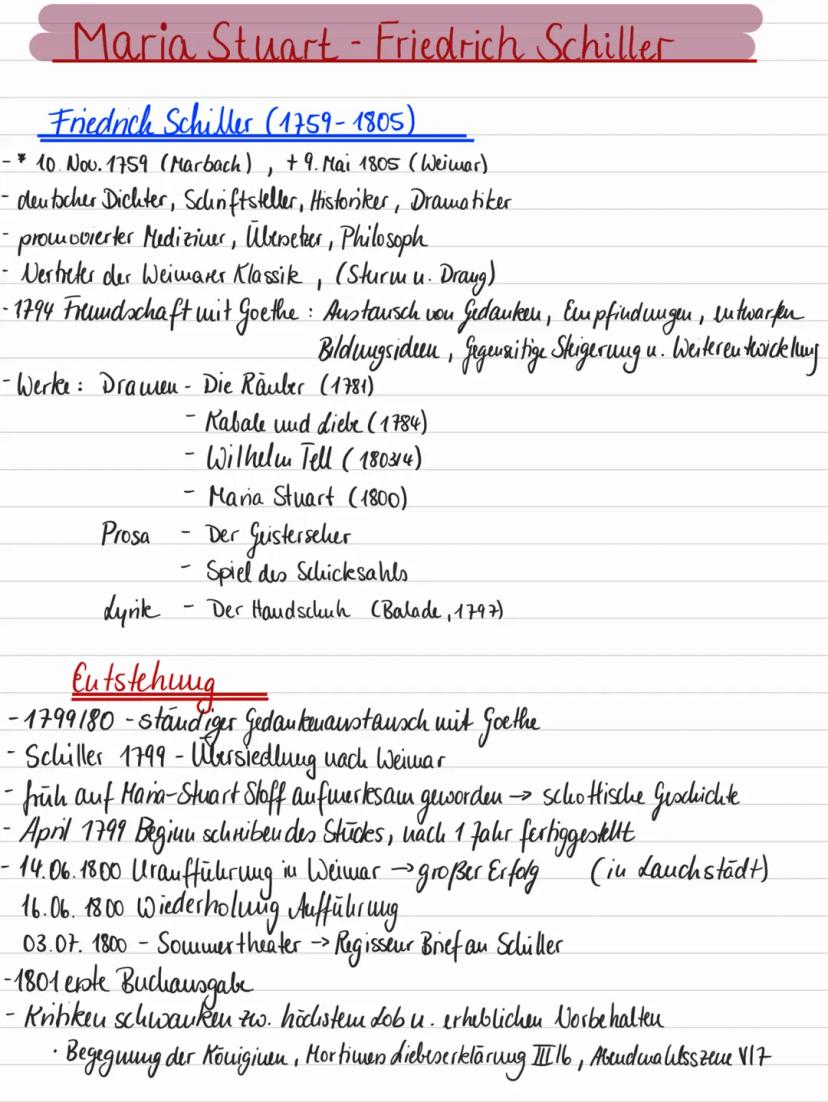 Maria Stuart - Friedrich Schiller
Friedrich Schiller (1759-1805)
- * 10. Nov. 1759 (Marbach) , + 9. Mai 1805 (Weimar)
- deutscher Dichter, Schriftsteller, Historiker, Dramatiker
- promovierter Mediziner, Übersetzer, Philosoph
- Vertreter der Weimarer Klassik , (Sturm u. Drang)
- 1794 Freundschaft mit Goethe : Austausch von Gedanken, Empfindungen, entwarfen
Bildungsideen, gegenseitige Steigerung u. Weiterentwicklung
- Werke: Dramen - Die Räuber (1781)
- Kabale und Liebe (1784)
- Wilhelm Tell (1803/4)
- Maria Stuart (1800)
Prosa - Der Geisterseher
- Spiel des Schicksahls
Lyrik - Der Handschuh (Balade, 1797)
Entstehung
- 1799/80 - ständiger Gedankenaustausch mit Goethe
- Schiller 1799 - Übersiedlung nach Weimar
- früh auf Maria-Stuart Stoff aufmerksam geworden → schottische Geschichte
- April 1799 Beginn schreiben des Stücks, nach 1 Jahr fertiggestellt
- 14.06.1800 Uraufführung in Weimar → großer Erfolg (in Lauchstädt)
16.06.1800 Wiederholung Aufführung
03.07.1800 - Sommertheater → Regisseur Brief an Schiller
- 1801 erste Buchausgabe
- Kritiken schwanken zw. höchstem Lob u. erheblichen Vorbehalten
· Begegnung der Königinen, Mortimers Liebeserklärung III/6, Abendmahlsszene V/7